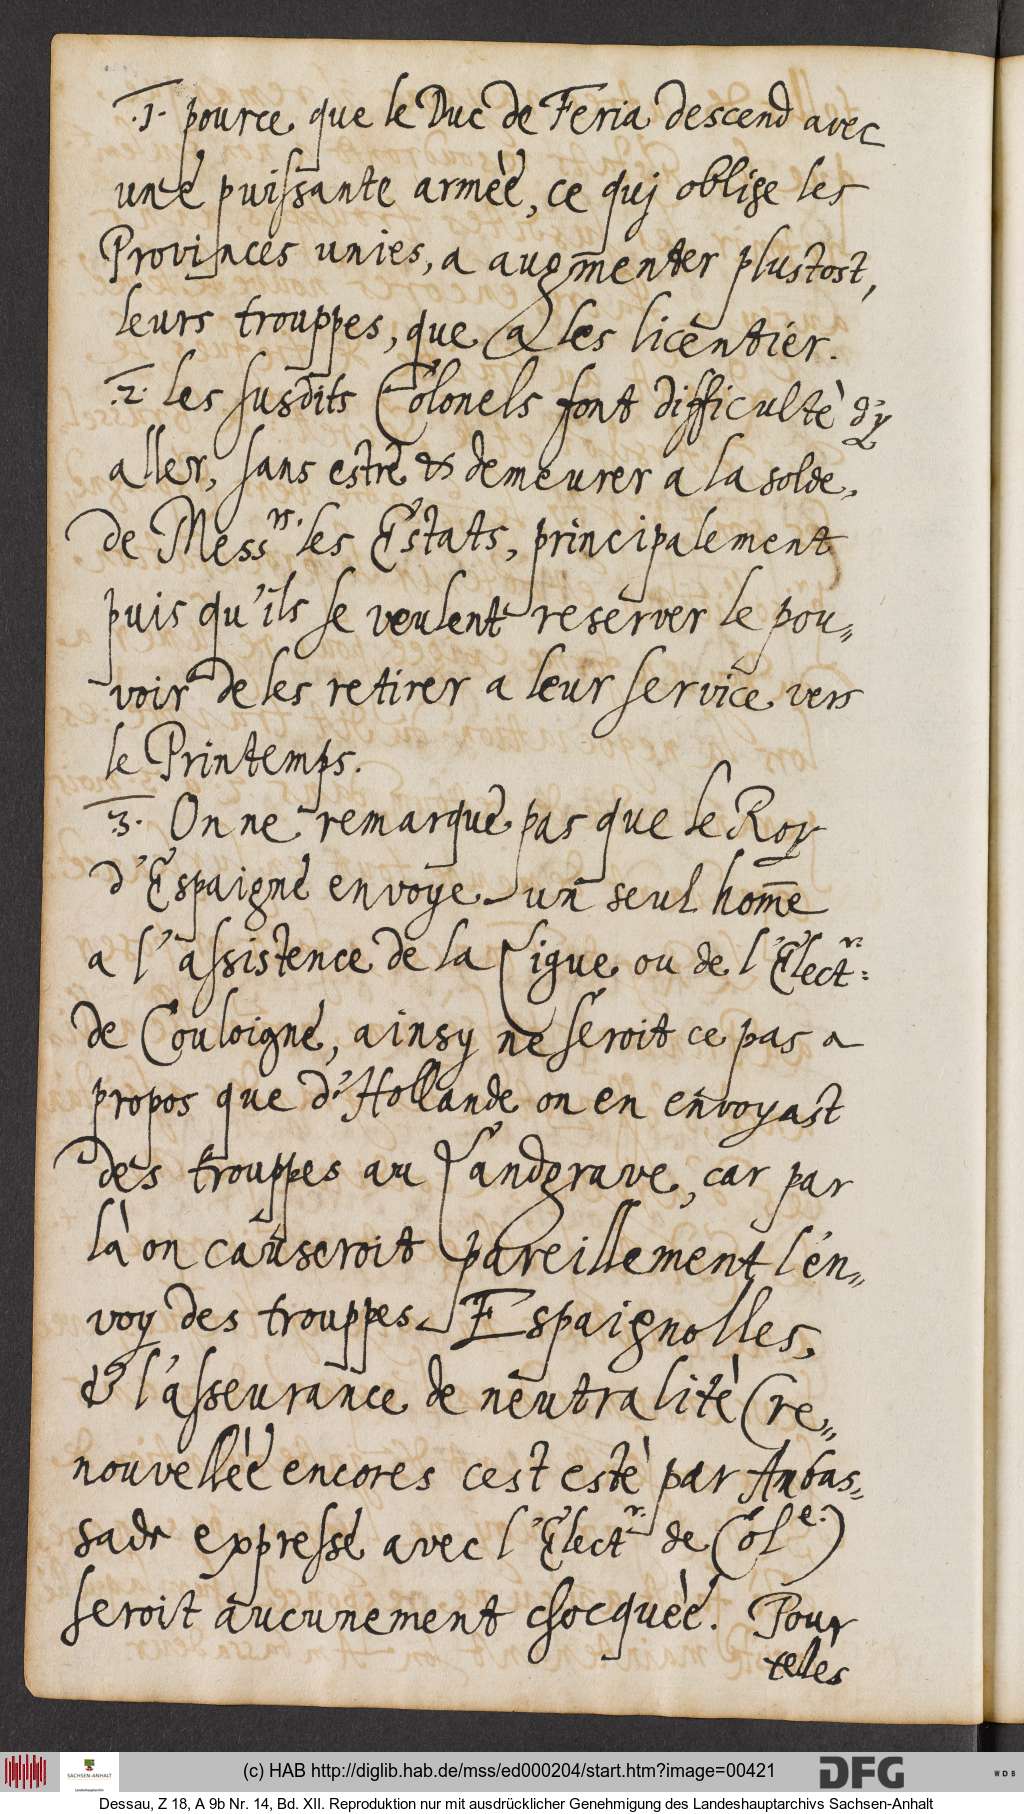 .1. pource, que le Duc de Feria descend avec
une puissante armèè, ce quj oblige les
Provinces unies, a augm̄enter plustost,
leurs trouppes, que a les licentier.
.2. les susdits Colonels font difficultè d'y
aller, sans estre & demeurer a la solde,
de Mess.rs les Estats, principalement
puis qu'ils se veulent reserver le pou„
voir de les retirer a leur service, vers
le Printemps.
.3. On ne remarque, pas que le Roy
d'Espaigne envoye un seul hom̄e
a l'assistence de la Ligue, ou de l'Elect.r:
de Couloigne, ainsy ne seroit ce pas a
propos que d'Hollande, on en envoyast
des trouppes au Landgrave, car par
là on causeroit pareillement l'en„
voy des trouppes Espaignolles,
& l'asseurance, de neutralitè (re„
nouvellèe encores cest estè par Ambas„
sade expresse avec l'Elect.r de Col.e)
seroit aucunement chocquèè. Pour
telles
(c) HAB http://diglib.hab.de/mss/ed000204/start.htm?image=00421
SACHSEN-ANHALT
Landeshauptarchiv
DFG
WDB
Dessau, Z 18, A 9b Nr. 14, Bd. XII. Reproduktion nur mit ausdrücklicher Genehmigung des Landeshauptarchivs Sachsen-Anhalt